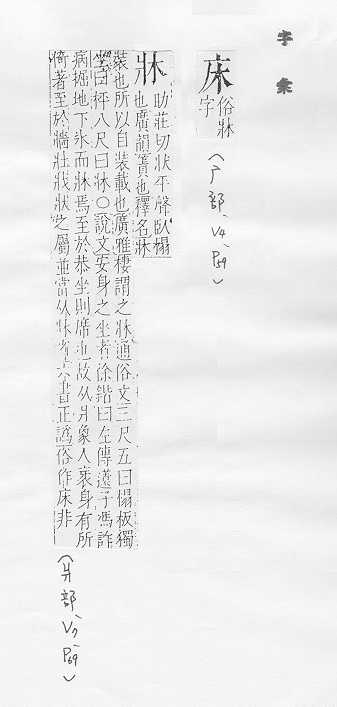 字彙
床 俗牀
字
（广部、V4、P59）
牀 助莊切狀平聲臥榻
也廣韻簀也釋名牀
裝也所以自裝載也廣雅棲謂之牀通俗文三尺五曰榻板獨
坐曰枰八尺曰牀○說文安身之坐者徐鍇曰左傳薳子馮詐
病掘地下氷而牀焉至於恭坐則席也故从爿象人衺身有所
倚著至於牆壯戕狀之屬並當从牀省六書正譌俗作床非
（爿部、V7、P69）